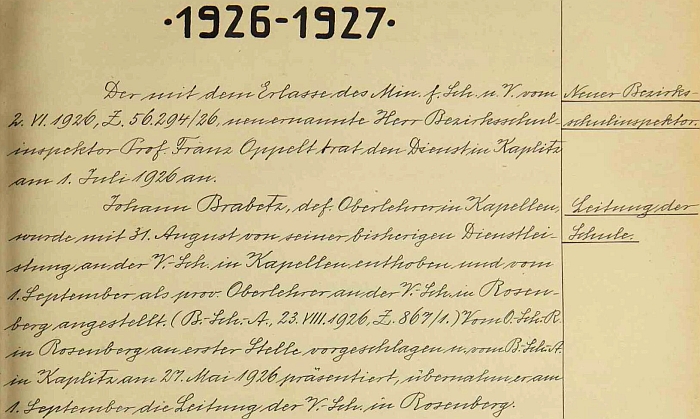 ·1926-1927·
Der mit dem Erlasse des Min. f. Sch. u. V. vom
2. VI. 1926, Z. 56.294/26, neuernannte Herr Bezirksschul-
inspektor Prof. Franz Oppelt trat den Dienst in Kaplitz
am 1. Juli 1926 an.
Johann Brabetz, def. Oberlehrer in Kapellen,
wurde mit 31. August von seiner bisherigen Dienstlei-
stung an der V.-Sch. in Kapellen enthoben und vom
1. September als prov. Oberlehrer an der V.-Sch. in Rosen-
berg angestellt. (B.-Sch.-A., 23. VIII. 1926, Z. 867/1.) Vom O.-Sch.-R.
in Rosenberg an erster Stelle vorgeschlagen u. vom B.-Sch.-A.
in Kaplitz am 27. Mai 1926 präsentiert, übernahm er am
1. September die Leitung der V.-Sch. in Rosenberg.
Neuer Bezirks-
schulinspektor.
Leitung der
Schule.